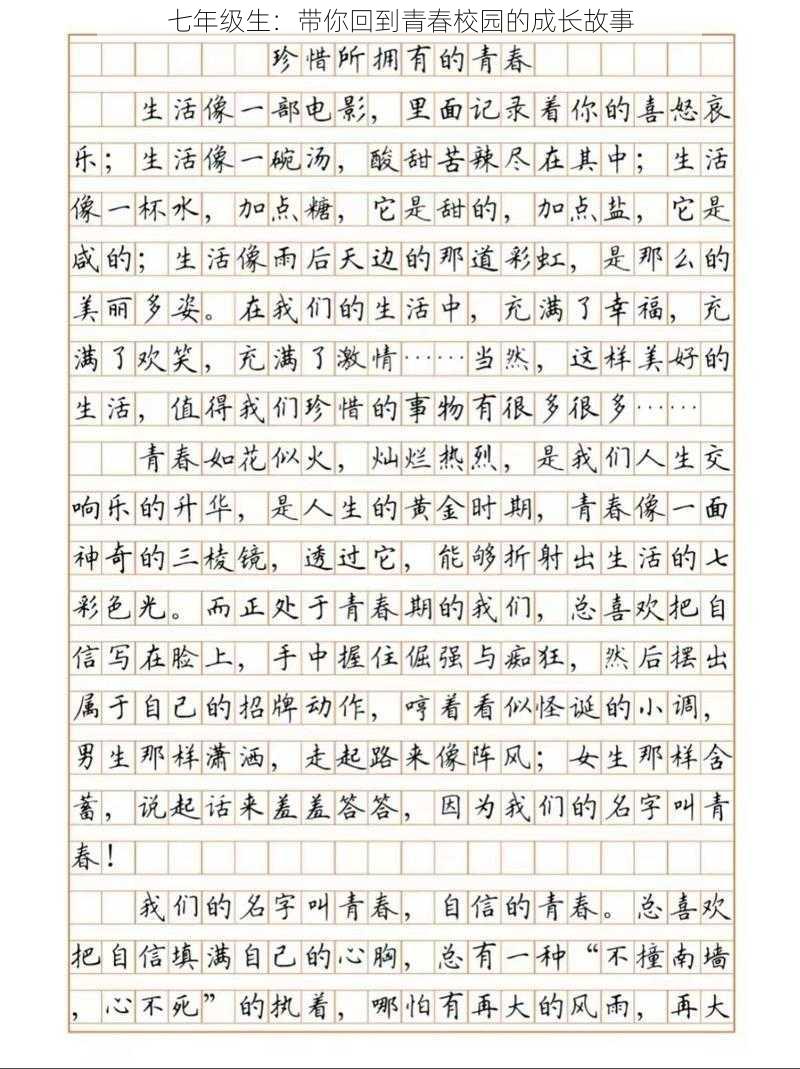 七年级生：带你回到青春校园的成长故事
珍惜所拥有的青春
生活像一部电影，里面记录着你的喜怒哀
乐；生活像一碗汤，酸甜苦辣尽在其中；生活
像一杯水，加点糖，它是甜的，加点盐，它是
咸的；生活像雨后天边的那道彩虹，是那么的
美丽多姿。在我们的生活中，充满了幸福，充
满了欢笑，充满了激情……当然，这样美好的
生活，值得我们珍惜的事物有很多很多……
青春如花似火，灿烂热烈，是我们人生交
响乐的升华，是人生的黄金时期，青春像一面
神奇的三棱镜，透过它，能够折射出生活的七
彩色光。而正处于青春期的我们，总喜欢把自
信写在脸上，手中握住倔强与痴狂，然后摆出
属于自己的招牌动作，哼着看似怪诞的小调，
男生那样潇洒，走起路来像阵风；女生那样含
蓄，说起话来羞羞答答，因为我们的名字叫青
春！
我们的名字叫青春，自信的青春。总喜欢
把自信填满自己的心胸，总有一种“不撞南墙
，心不死”的执着，哪怕有再大的风雨，再大